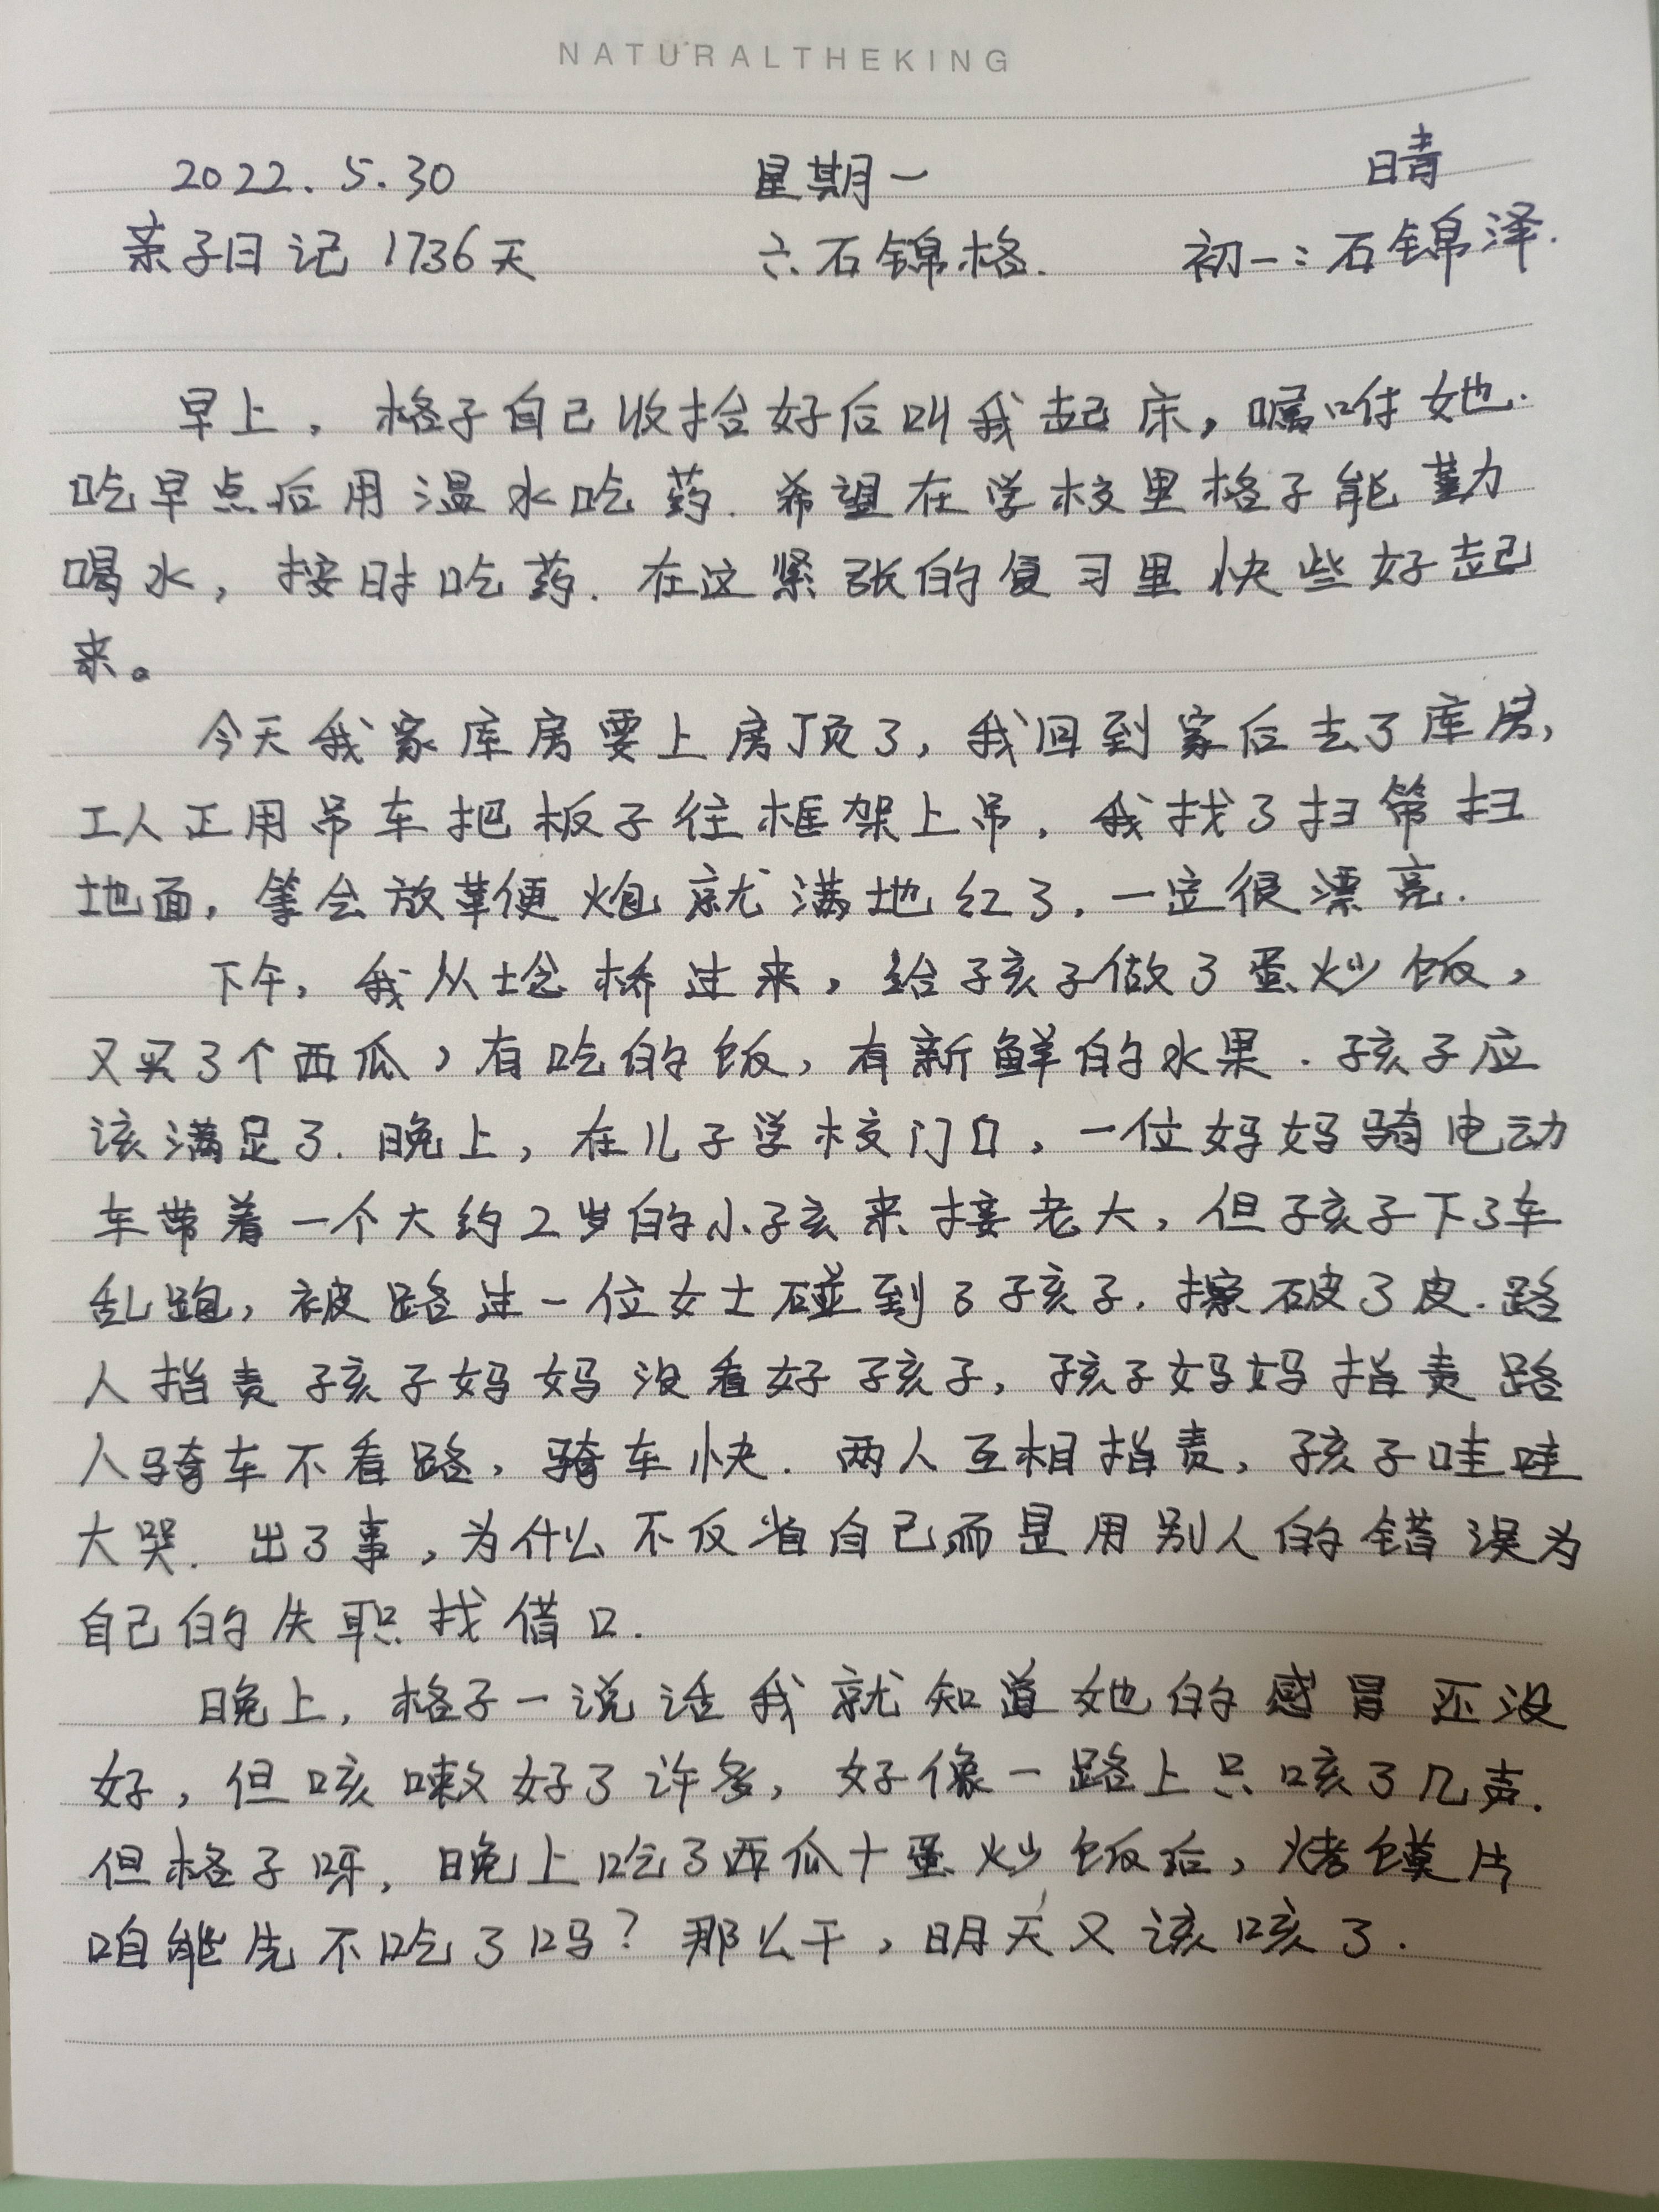 NATURALTHEKING
2022. 5.30 星期一 晴
亲子日记 1736天 六石锦格. 初一:石锦泽.
早上，格子自己收拾好后叫我起床，嘱咐她.
吃早点后用温水吃药. 希望在学校里格子能勤
喝水，按时吃药. 在这紧张的复习里快些好起
来。
今天我家库房要上房顶了，我回到家后去了库房，
工人正用吊车把板子往框架上吊，我找了扫帚扫
地面，等会放革便炮就满地红了，一定很漂亮.
下午，我从埝桥过来，给孩子做了蛋炒饭，
又买了个西瓜，有吃的饭，有新鲜的水果. 孩子应
该满足了. 晚上，在儿子学校门口，一位妈妈骑电动
车带着一个大约2岁的小孩来接老大，但孩子下了车
乱跑，被路过一位女士碰到了孩子. 擦破了皮. 路
人指责孩子妈妈没看好孩子，孩子妈妈指责路
人骑车不看路，骑车快. 两人互相指责，孩子哇哇
大哭. 出了事，为什么不反省自己而是用别人的错误为
自己的失职找借口.
晚上，格子一说话我就知道她的感冒还没
好，但咳嗽好了许多，好像一路上只咳了几声.
但格子呀，晚上吃了西瓜+蛋炒饭后，烤馍片
咱能先不吃了吗？那么干，明天又该咳了.